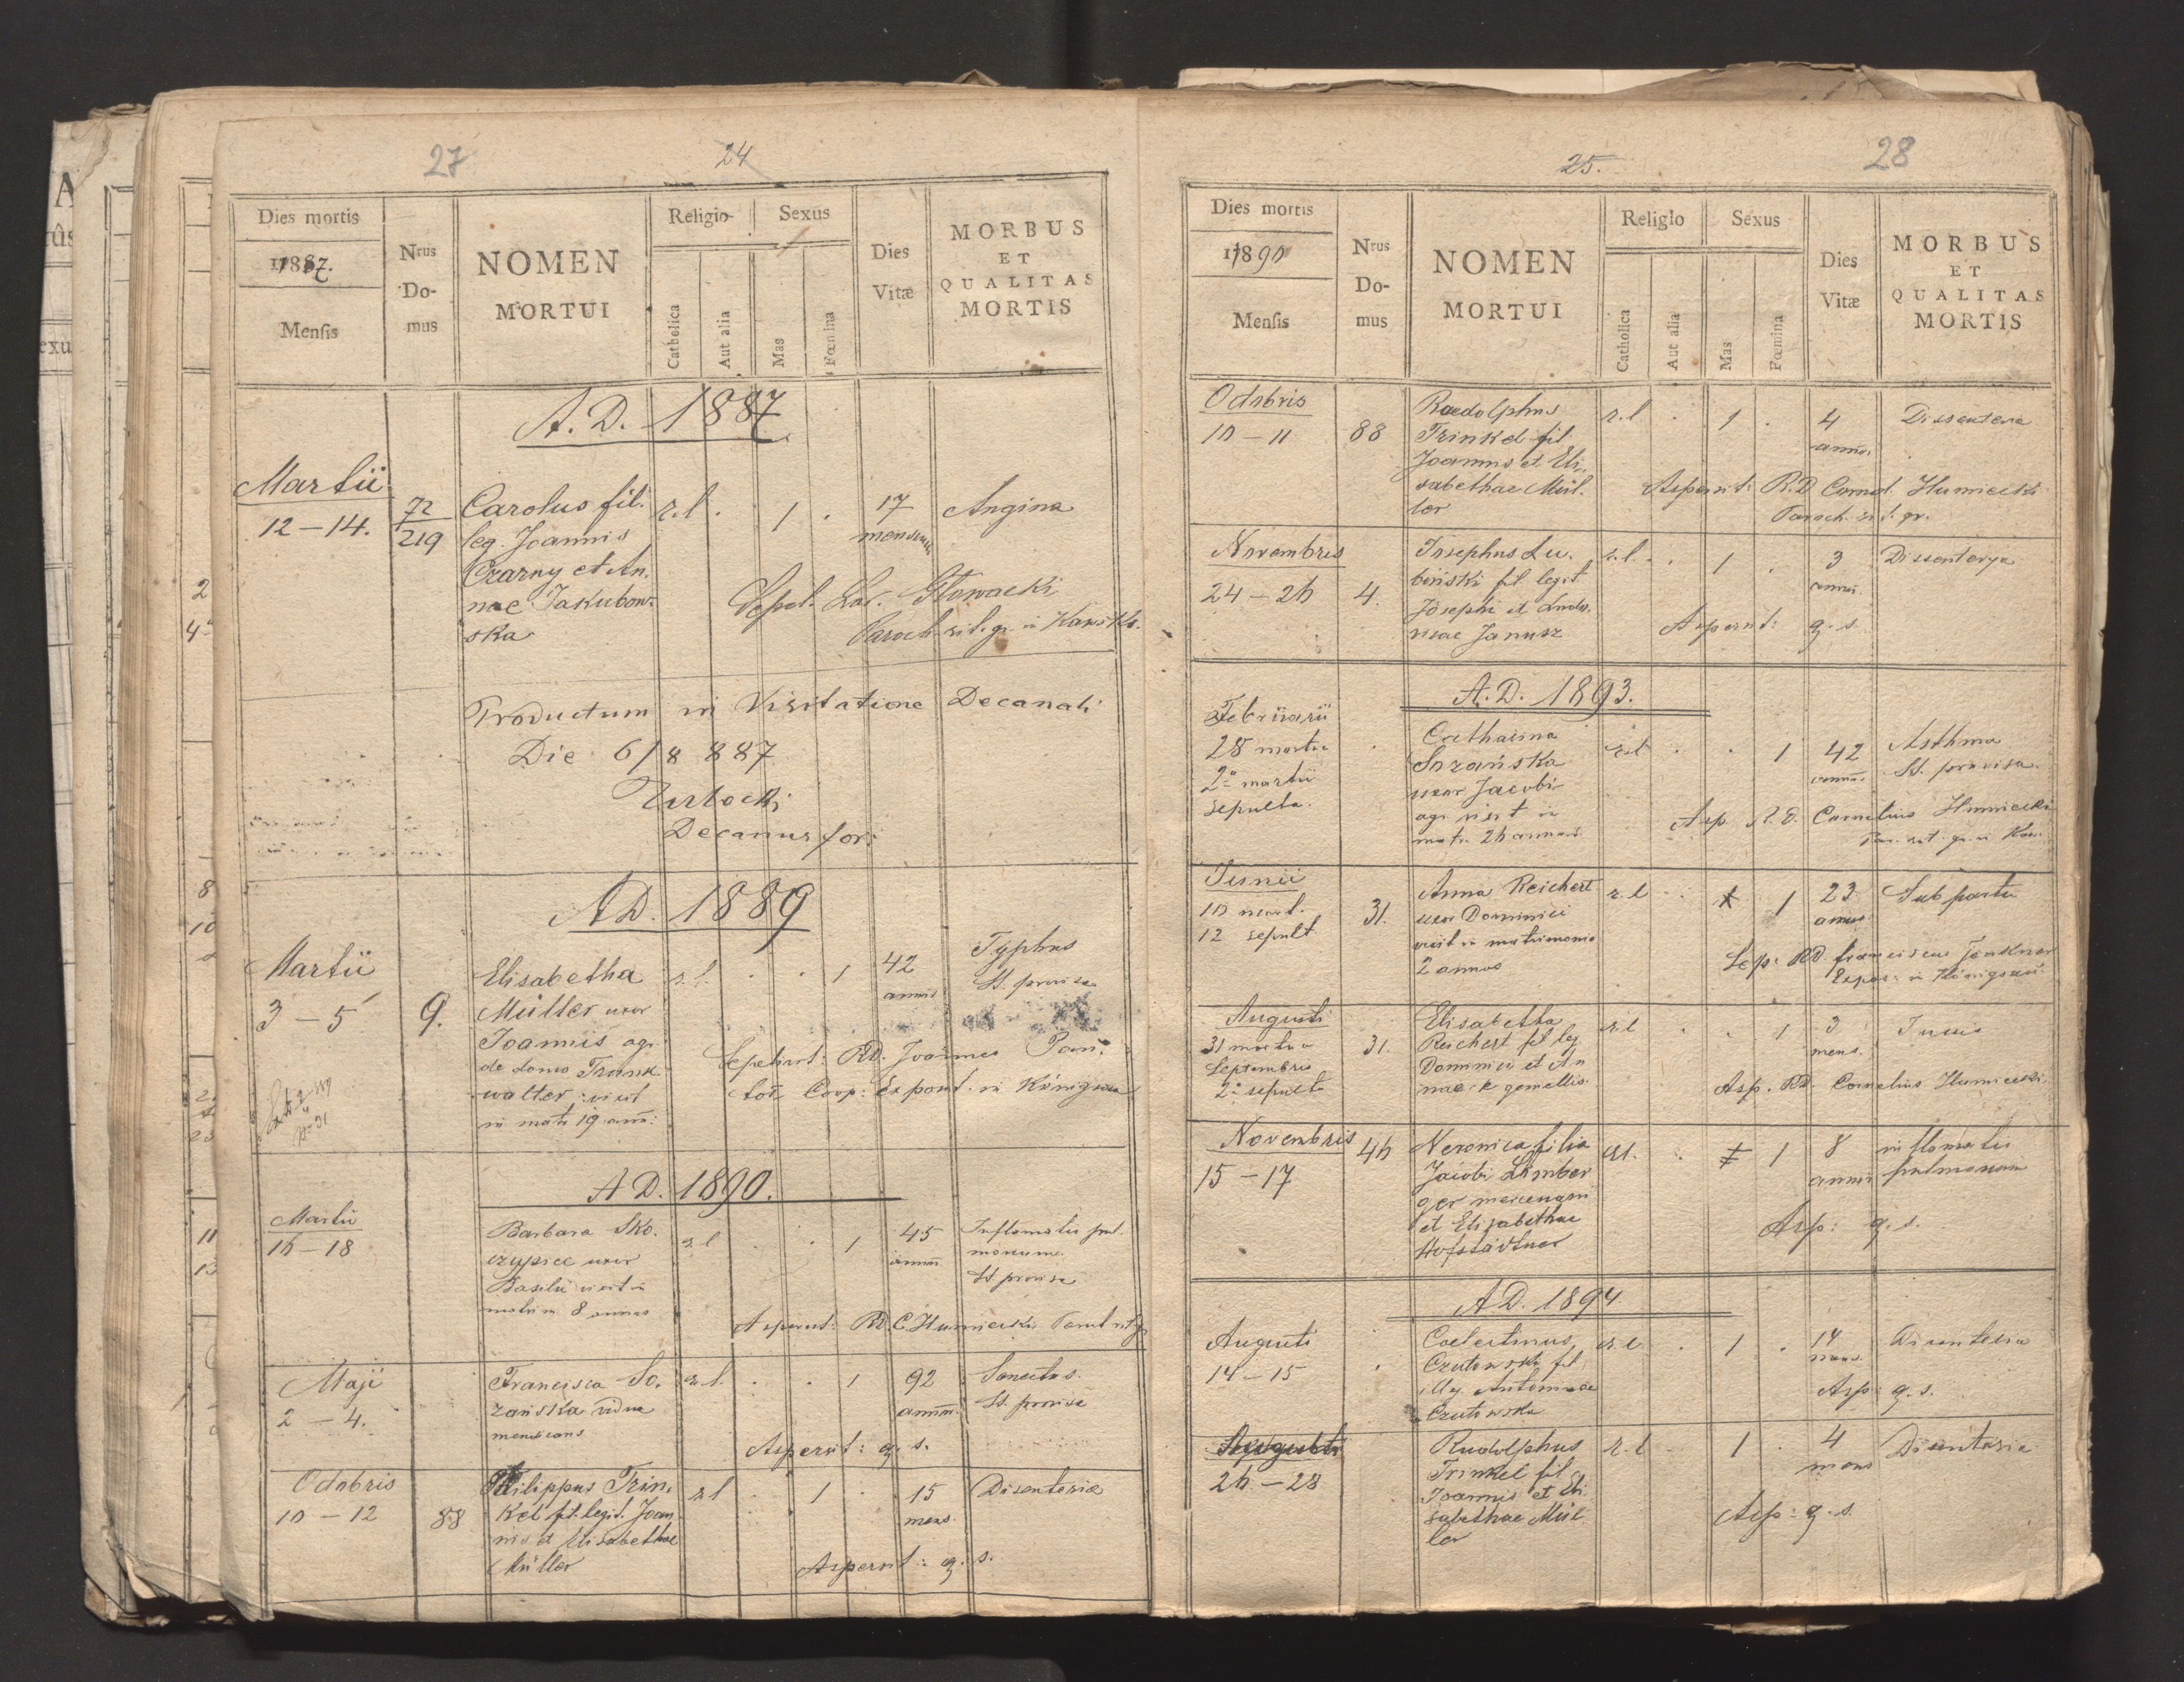 27
24
Dies mortis
1887.
Mensis
Nrus
Do-
mus
NOMEN
MORTUI
Religio
Catholica
Aut alia
Sexus
Mas
Fœmina
Dies
Vitæ
MORBUS
ET
QUALITAS
MORTIS
A. D. 1887
Martii
12 – 14.
72
219
Carolus fil.
leg. Joannis
Czarny et An.
nae Jakubow.
ska
r.l. . 1 .
17
mensium
Angina
Sepel. Lad. Głowacki
Paroch. rit. gr. in
Productum in Visitatione Decanali
Die 6/8 887
Decanus for:
A D. 1889
Martii
3 – 5
9.
Elisabetha
Müller uxor
Joannis agr.
de domo Trunk
walter vixit
in matr 19 ann:
r.l. . . 1
42
annis
Typhus
SS. provisa
Sepelivit: RD. Joannes
Coop: Expost. in Königsau
A D. 1890.
Martii
16 – 18
Barbara Sko.
czypiec uxor
Basilii vixit in
matrim. 8 annos
r.l . . 1
45
annum
Inflamatio pul.
monum.
SS provisa
Asperut: RD. C. Humiecki
Maji
2 – 4.
Francisca So.
zańska vidua
mendicans
r.l. . . 1
92
annum.
Senectus.
SS. provisa
Asperut: q. s.
Octobris
10 – 12
88
Philippus Trin.
kel fil. legit. Joan
nis et Elisabethae
Müller
r.l . 1 .
15
mens.
Disenteria
Asperut: q. s.
25.
28
Dies mortis
1890
Mensis
Nrus
Do-
mus
NOMEN
MORTUI
Religio
Catholica
Aut alia
Sexus
Mas
Fœmina
Dies
Vitæ
MORBUS
ET
QUALITAS
MORTIS
Octobris
10 – 11
88
Rudolphus
Trinkel fil
Joannis et Eli.
sabethae Mül.
ler
r.l . 1 .
4
annor.
Dissenteria
Asperut: R.D Cornel. Humiecki
Paroch. rit. gr.
Novembris
24 – 26
4.
Josephus Lu.
biński fil legit
Josephi et Ludo.
vicae Janusz
r.l. . 1 .
3
annor.
Dissenterya
Asperut: q. s.
A. D. 1893.
Februarii
28 mortua
2a martii
sepulta.
.
Catharina
Sozańska
uxor Jacobi
agr. vixit in
matr. 26 annos
r.l . . 1
42
annos
Asthma
SS. provisa.
Asp. R. D. Cornelius Humiecki
Par. rit. gr. in
Junii
10 mort.
12 sepult
31.
Anna Reichert
uxor Dominici
vixit in matrimonio
2 annos
r.l . 1
23
annos
Sub partu
Sep: RD. Franciscus
Expos: in Königsau
Augusti
31 mortua
Septembris
2a sepulta
31.
Elisabetha
Reichert fil leg
Dominici et An
nae e gemellis
r.l . . 1
3
mens.
Asp. RD. Cornelius Humiecki
Novembris
15 – 17
46
Veronica filia
Jacobi Limber
ger
et Elisabethae
Hofstädtner
r.l. . 1
8
annor
inflamatio
pulmonum
Asp: q. s.
A D. 1894
Augusti
14 – 15
.
Coelestinus
Czutowski fil
illeg. Antoninae
Czutowska
r.l. . 1 .
14
mens.
Disenteria
Asp: q. s.
Augusti
26 – 28
Rudolphus
Trinkel fil
Joannis et Eli
sabethae Mül
ler
r.l . 1 .
4
mens
Disenteria
Asp: q. s.